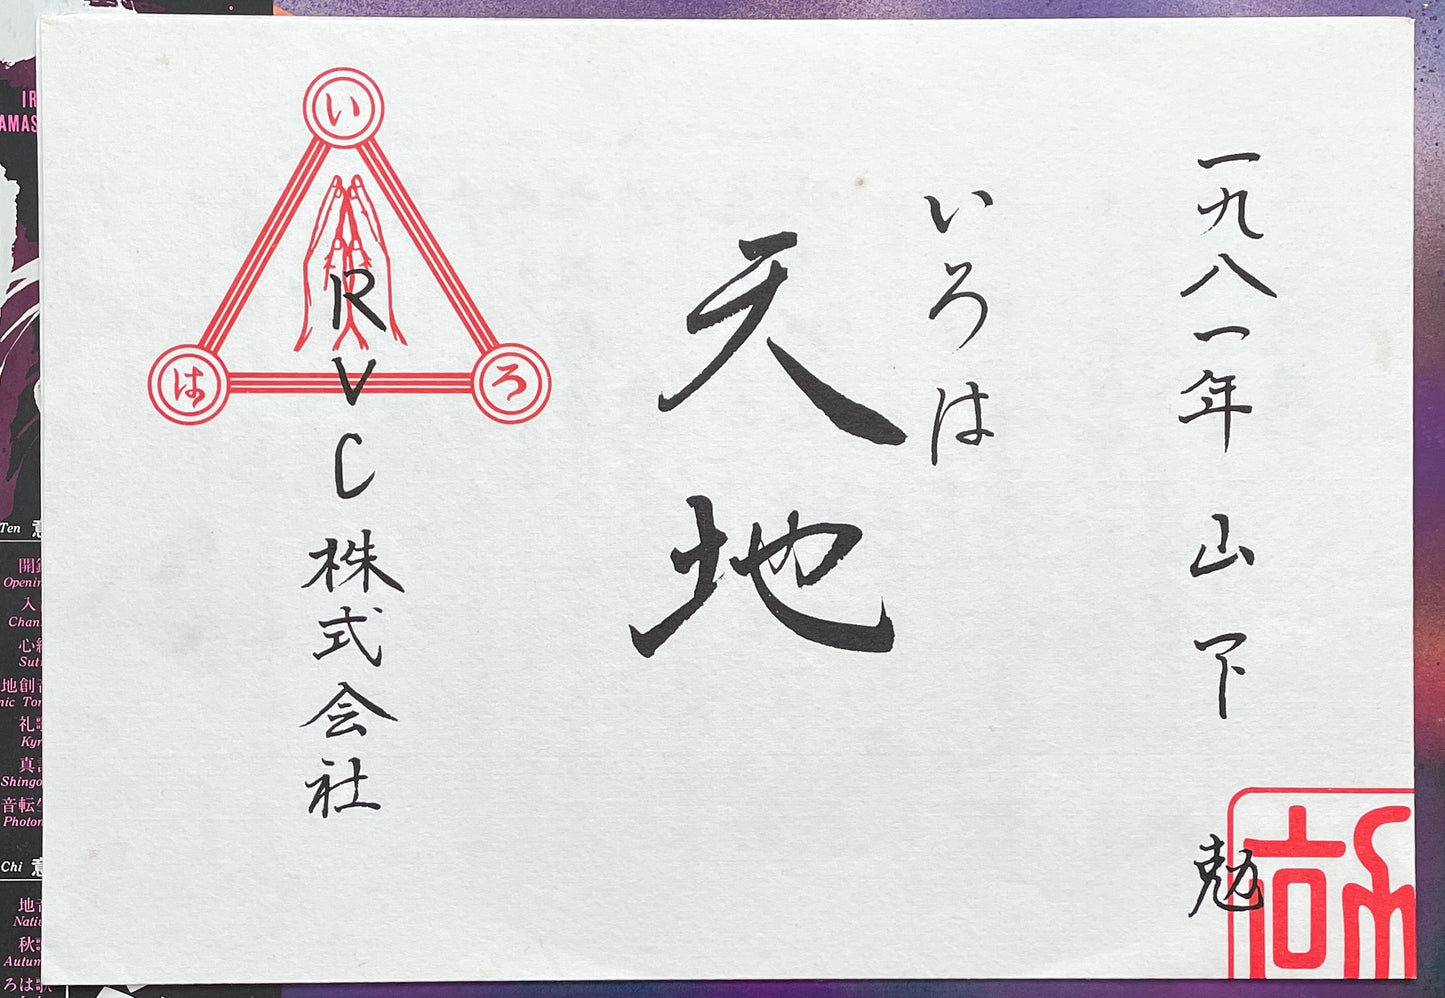 一九八一年 山下 勉
いろは
天地
RVC株式会社
い
は
ろ
IR
AMAS
Ten 意
開
Openin
入
Chan
心
Sut
地創音
nic Ton
礼
Kyr
真
Shingo
音転
Photon
Chi 意
地
Natu
秋
Autum
ろは歌